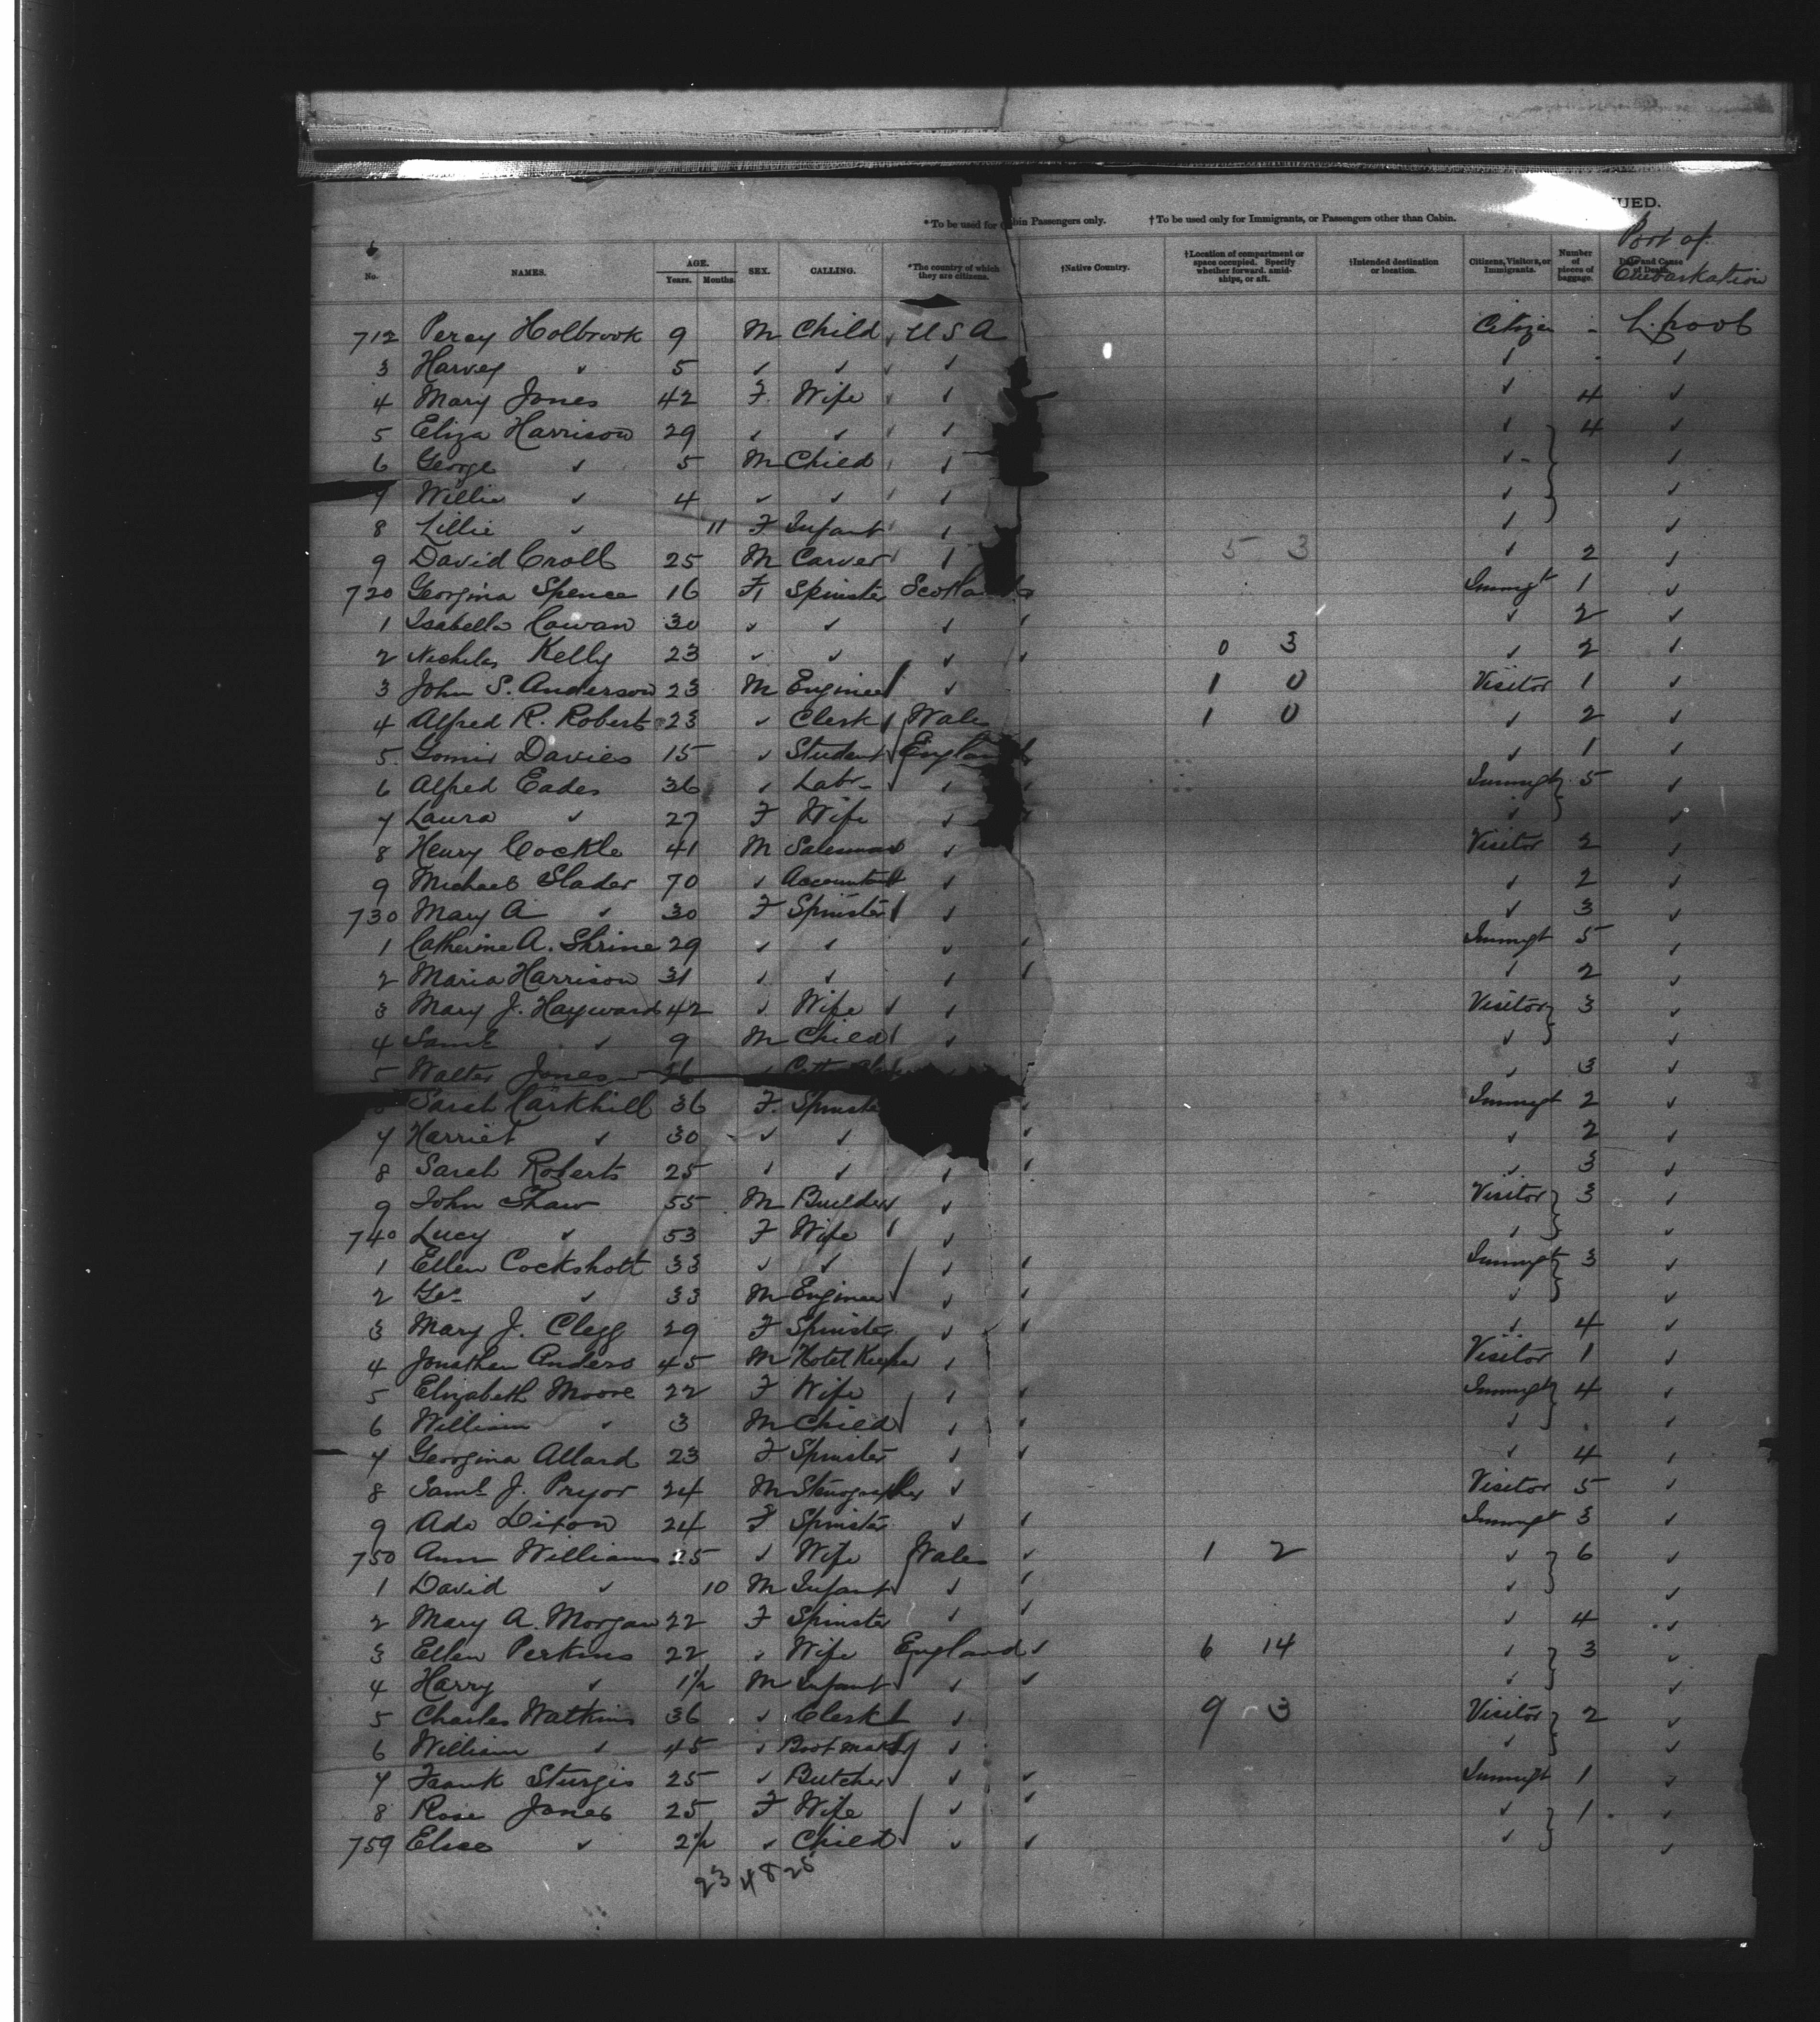 UED.
*To be used for Cabin Passengers only. †To be used only for Immigrants, or Passengers other than Cabin.
Port of
Embarkation
No. NAMES. AGE. Years. Months. SEX. CALLING. *The country of which they are citizens. †Native Country. †Location of compartment or space occupied. Specify whether forward, amidships, or aft. †Intended destination or location. Citizens, Visitors, or Immigrants. Number of pieces of baggage. Date and Cause of Death.
712 Percy Holbrook 9 M Child USA Citizen - L.pool
3 Harvey " 5 " " " " - "
4 Mary Jones 42 F. Wife " " 4 "
5 Eliza Harrison 29 " " " " 4 "
6 George " 5 M Child " " "
7 Willie " 4 " " " " "
8 Lillie " 11 F Infant " " "
9 David Croll 25 M Carver " 5 3 " 2 "
720 Georgina Spence 16 F Spinster Scotland Immgt 1 "
1 Isabella Cowan 30 " " " " " 2 "
2 Kelly 23 " " " " 0 3 " 2 "
3 John S. Anderson 23 M Engineer " 1 0 Visitor 1 "
4 Alfred R. Roberts 23 " Clerk Wales 1 0 " 2 "
5 Gomir Davies 15 " Student England " 1 "
6 Alfred Eades 36 " Labr " " Immgt 5 "
7 Laura " 27 F Wife " " " "
8 Henry Cockle 41 M Salesman " Visitor 2 "
9 Michael Slader 70 " Accountant " " 2 "
730 Mary A " 30 F Spinster " " 3 "
1 Catherine A. Shrine 29 " " " " Immgt 5 "
2 Maria Harrison 31 " " " " " 2 "
3 Mary J. Hayward 42 " Wife " Visitor 3 "
4 Saml " 9 M Child " " "
5 Walter Jones " " 3 "
Sarah Carkhill 36 F. Spinster " Immgt 2 "
7 Harriet " 30 " " " " 2 "
8 Sarah Roberts 25 " " " " " 3 "
9 John Shaw 55 M Builder " Visitor 3 "
740 Lucy " 53 F Wife " " "
1 Ellen Cockshott 33 " " " " Immgt 3 "
2 Geo " 33 M Engineer " " " "
3 Mary J. Clegg 29 F Spinster " " " 4 "
4 Jonathan Anders 45 M Hotel Keeper " Visitor 1 "
5 Elizabeth Moore 22 F Wife " " Immgt 4 "
6 William " 3 M Child " " " "
7 Georgina Allard 23 F Spinster " " " 4 "
8 Saml J. Pryor 24 M Stenographer " Visitor 5 "
9 Ada Dixon 24 F Spinster " " Immgt 3 "
750 Ann Williams 25 " Wife Wales " 1 2 " 6 "
1 David " 10 M Infant " " " "
2 Mary A. Morgan 22 F Spinster " " " 4 "
3 Ellen Perkins 22 " Wife England " 6 14 " 3 "
4 Harry " 1½ M Infant " " " "
5 Charles Watkins 36 " Clerk " 9 3 Visitor 2 "
6 William " 45 " Bootmaker " " "
7 Frank Sturgis 25 " Butcher " " Immgt 1 "
8 Rose Jones 25 F Wife " " " 1 "
759 Elise " 2½ " Child " " " "
23 48 25